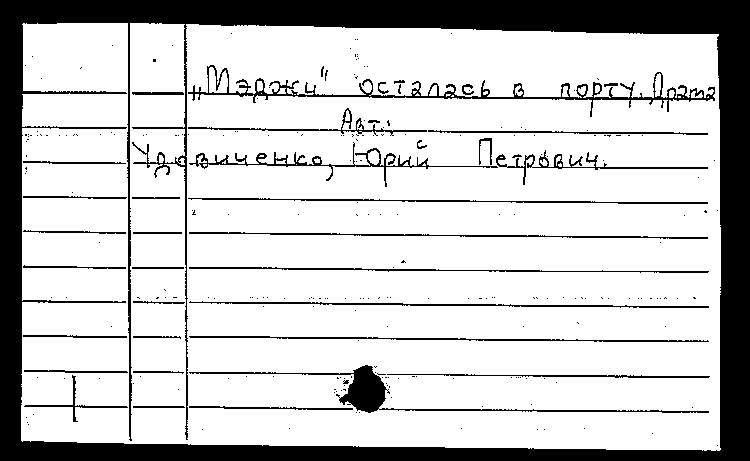 „Мэджи" осталась в порту. Драма
Авт.:
Удовиченко, Юрий Петрович.